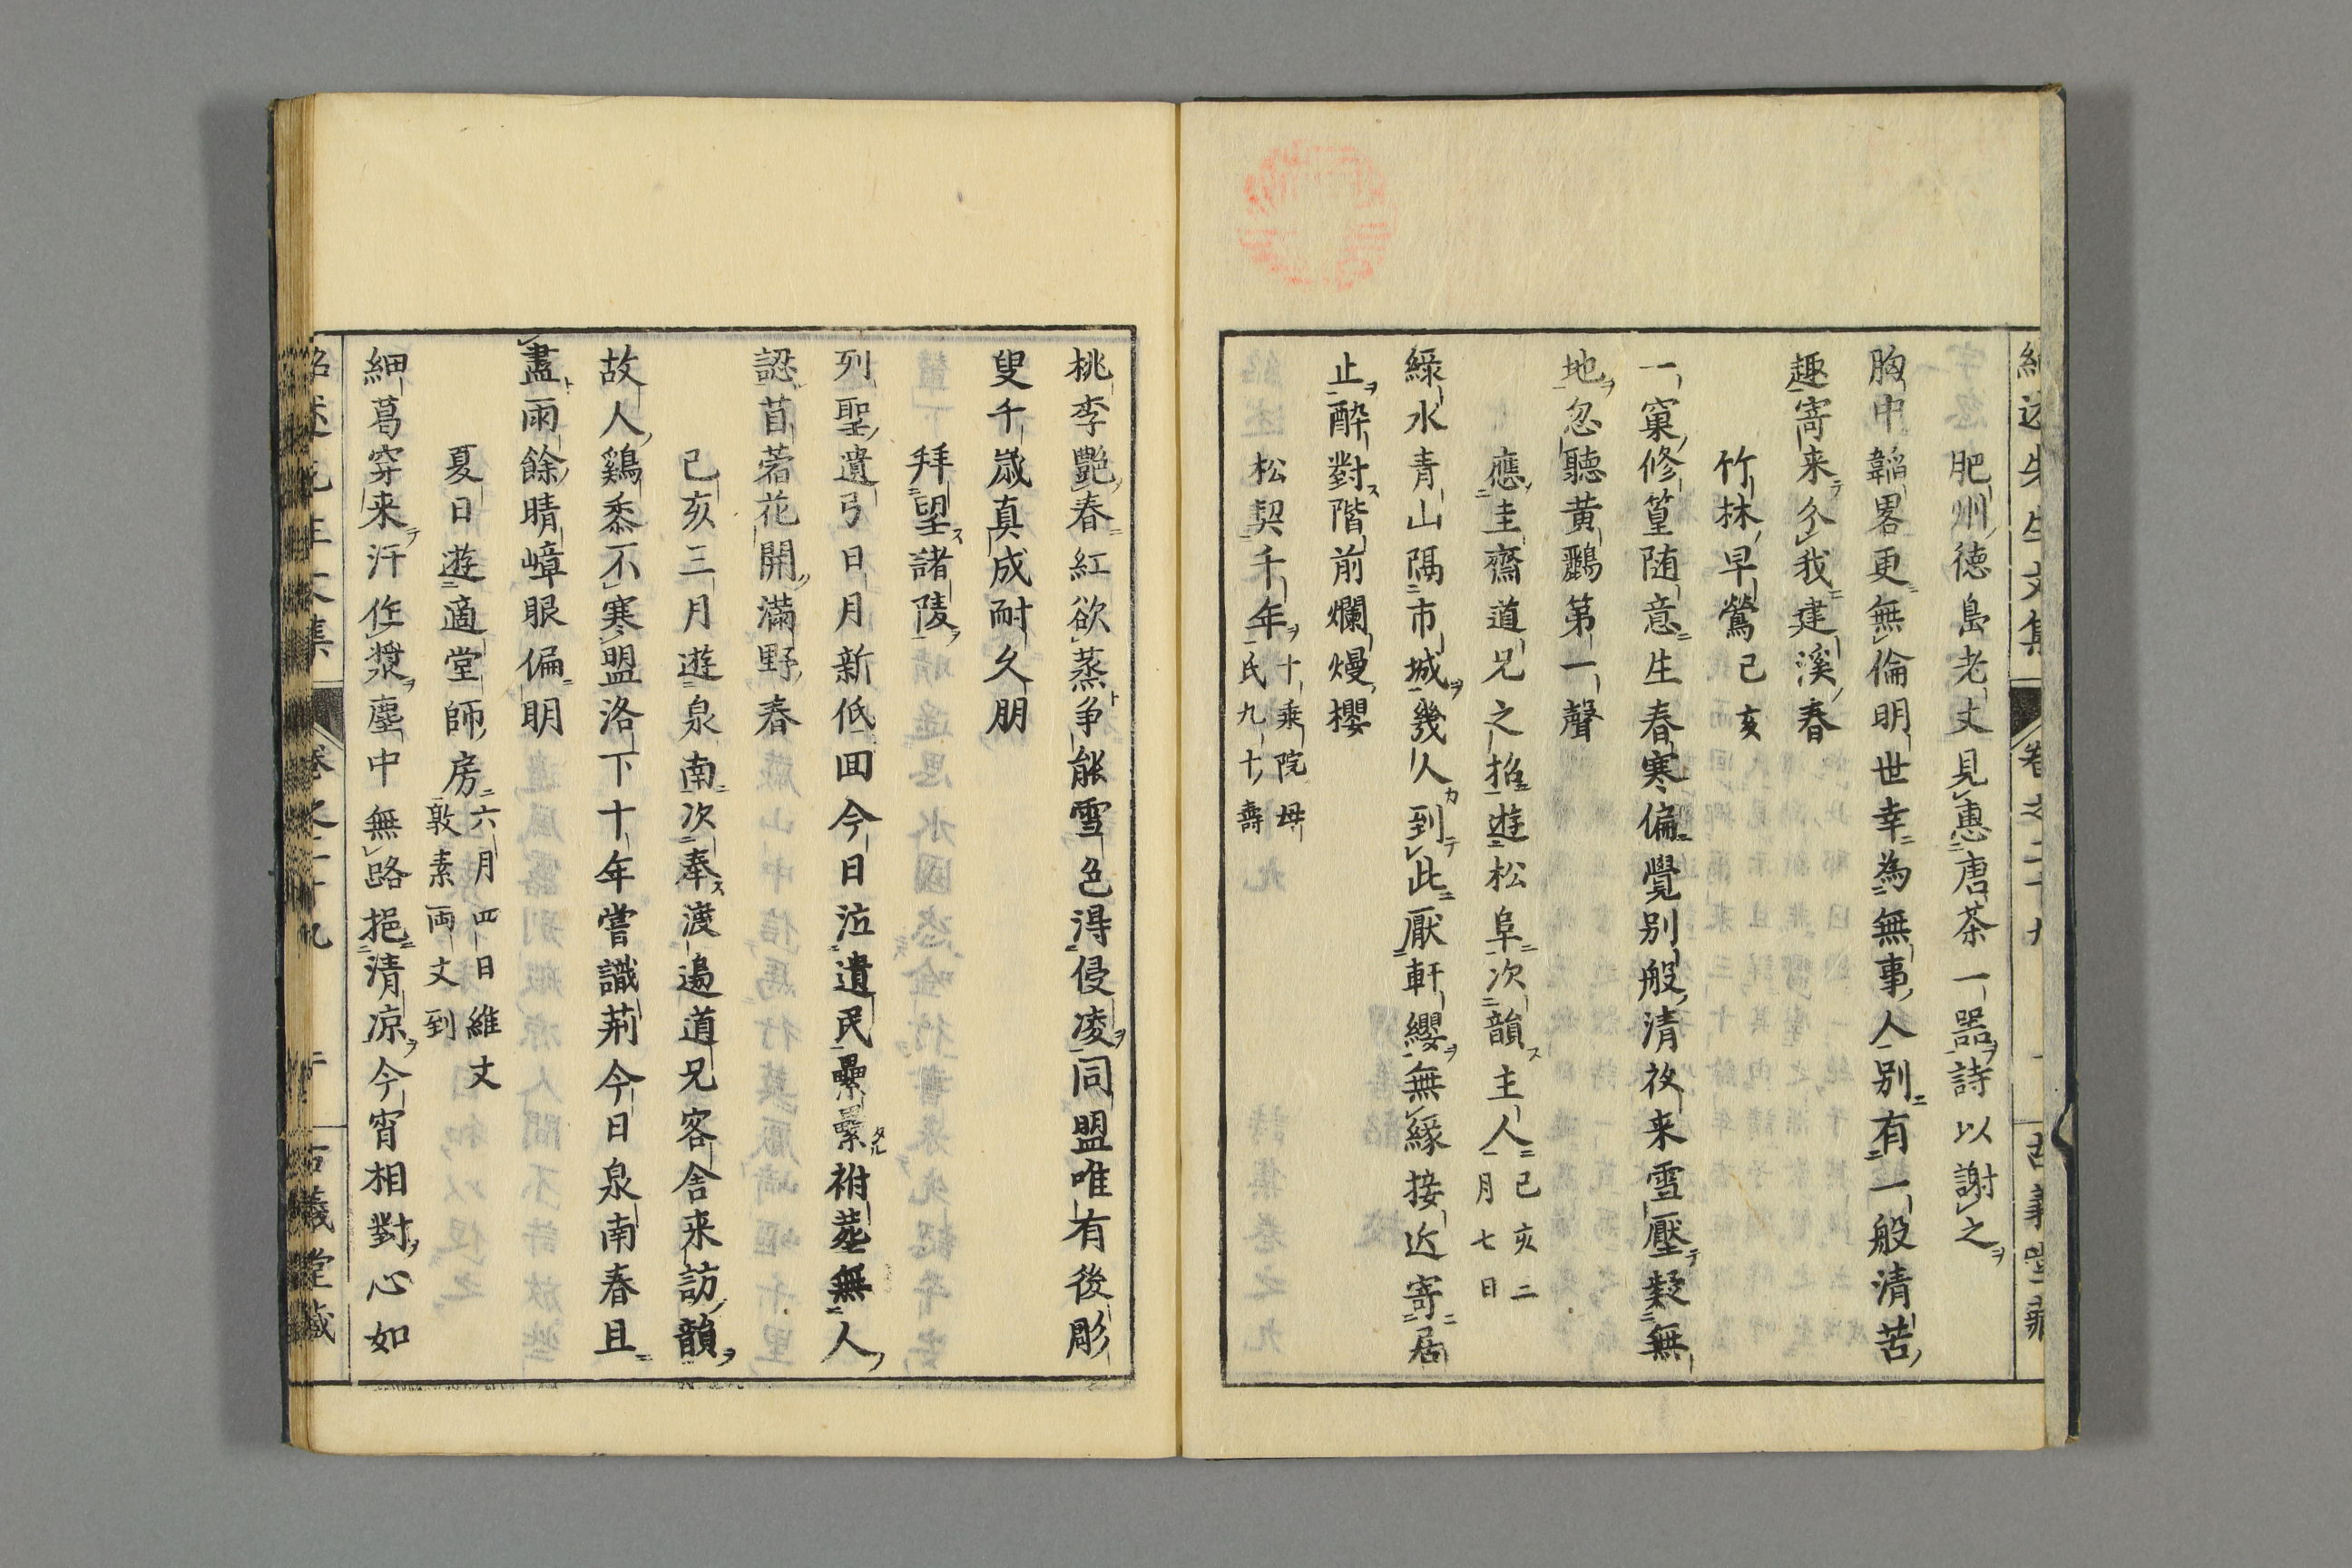 肥州德島老丈見惠唐茶一器詩以謝之
胸中韜畧更無倫明世幸為無事人別有一般清苦
趣寄来分我建溪春
竹林早鶯己亥
一窠修篁随意生春寒偏覺別般清夜来雪壓凝無
地忽聽黄鸝第一聲
應圭齋道兄之招遊松阜次韻主人己亥二
月七日
綠水青山隔市城幾人到此厭軒纓無緣接近寄居
止酔對階前爛熳櫻
松契千年十乘院母
氏九十壽
桃李艷春紅欲蒸争能雪色浔侵凌同盟唯有後彫
叟千歲真成耐久朋
拜望諸陵
列聖遺弓日月新低回今日泣遺民纍纍祔葬無人
認苜蓿花開滿野春
己亥三月遊泉南次奉渡邉道兄客舎来訪韻
故人鷄黍不寒盟洛下十年嘗識荊今日泉南春且
盡雨餘晴嶂眼偏明
夏日遊適堂師房六月四日維丈
敦素両丈到
細葛穿来汗作漿塵中無路挹清凉今宵相對心如
卷之二十九
古義堂藏